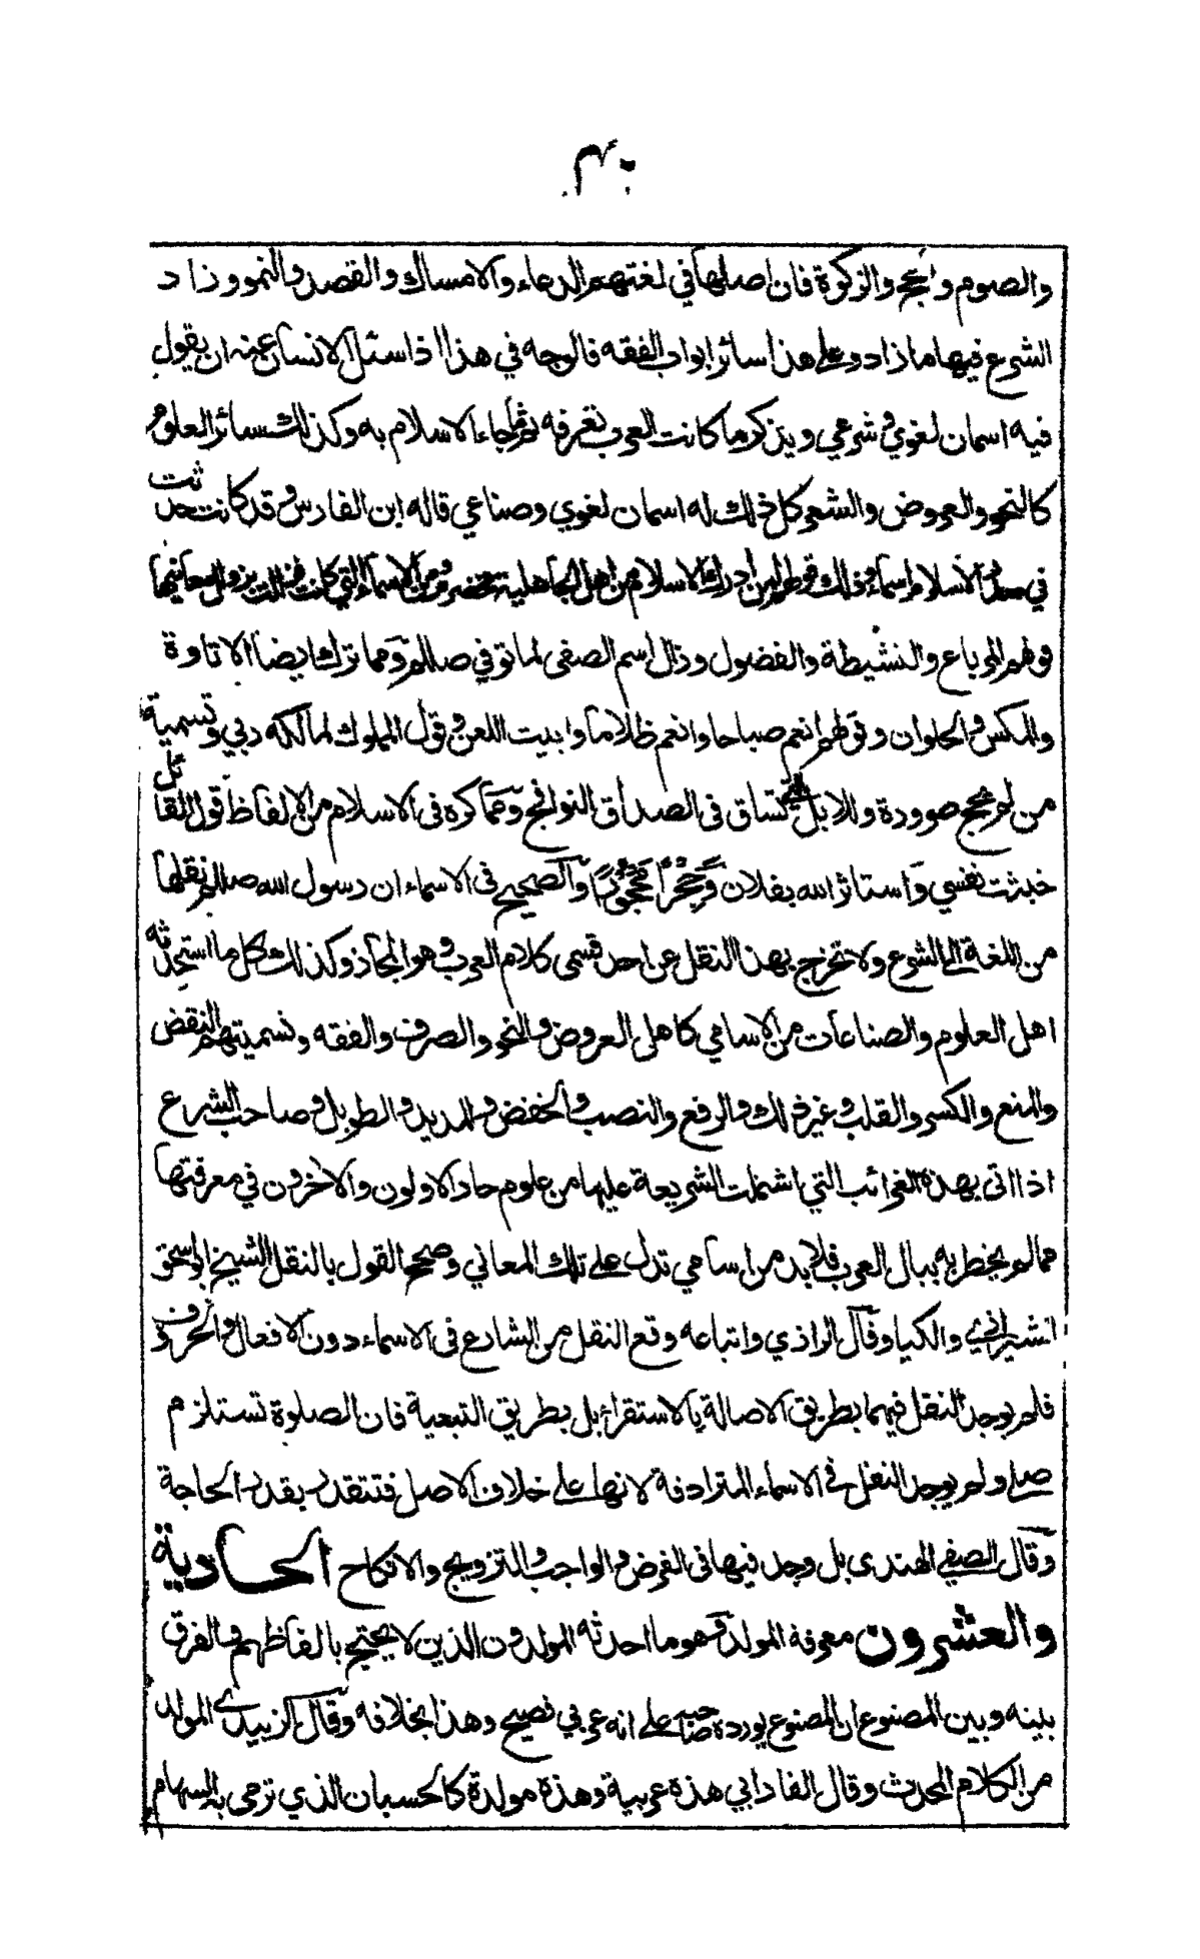 والصوم والحج والزكوة فان اصلها في لغتهم الدعاء والامساك والقصد والنمو وزاد
الشرع فيها ما زاد وعلى هذا سائر ابواب الفقه فالوجه في هذا اذا سئل الانسان عنه ان يقول
فيه اسمان لغوي وشرعي ويذكر ما كانت العرب تعرفه ثم جاء الاسلام به وكذلك سائر العلوم
كالنحو والعروض والشعر كل ذلك له اسمان لغوي وصناعي قاله ابن الفارس وقد كانت حدثت
في صدر الاسلام اسماء وذلك قولهم لمن ادرك الاسلام من اهل الجاهلية مخضرم ومن الاسماء التي كانت فزالت بزوال معانيها
قولهم المرباع والنشيطة والفضول وزال اسم الصفى لما توفي صللم ومما ترك ايضا الاتاوة
والمكس والحلوان وقولهم انعم صباحا وانعم ظلاما وابيت اللعن وقول المملوك لمالكه ربي وتسمية
من لم يحج صرورة وللابل تساق في الصداق النوافج ومما كره في الاسلام من الالفاظ قول القائل
خبثت نفسي واستاثر الله بفلان وحجرا محجورا والصحيح في الاسماء ان رسول الله صللم نقلها
من اللغة الى الشرع ولا تخرج بهذا النقل عن احد قسمى كلام العرب وهو المجاز وكذلك كل ما استحدثه
اهل العلوم والصناعات من الاسامي كاهل العروض والنحو والصرف والفقه وتسميتهم النقض
والمنع والكسر والقلب وغير ذلك والرفع والنصب والخفض والمديد والطويل وصاحب الشرع
اذا اتى بهذه الغرائب التي اشتملت الشريعة عليها من علوم حار الاولون والاخرون في معرفتها
مما لم يخطر به ببال العرب فلا بد من اسامي تدل على تلك المعاني وصحح القول بالنقل الشيخ ابو اسحق
الشيرازي والكيا وقال الرازي واتباعه وقع النقل من الشارع في الاسماء دون الافعال والحروف
فلم يوجد النقل فيهما بطريق الاصالة بالاستقراء بل بطريق التبعية فان الصلوة تستلزم
صلى ولم يوجد النقل في الاسماء المترادفة لانها على خلاف الاصل فتتقدر بقدر الحاجة
وقال الصفي الهندى بل وجد فيها في الفرض والواجب والتزويج والانكاح الحادية
والعشرون معرفة المولد وهو ما احدثه المولدون الذين لا يحتج بالفاظهم والفرق
بينه وبين المصنوع ان المصنوع يورده صاحبه على انه عربي فصيح وهذا بخلافه وقال الزبيدي المولد
من الكلام المحدث وقال الفارابي هذه عربية وهذه مولدة كالحسبان الذي ترمى به السهام